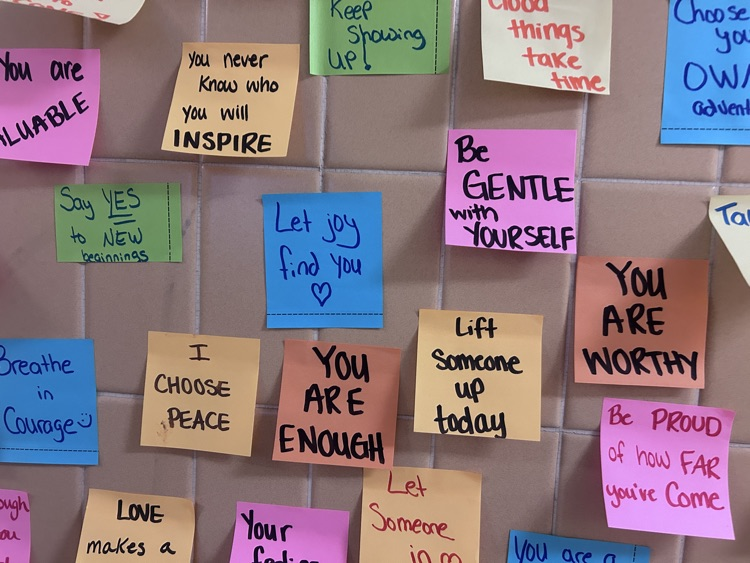 Keep
Showing
UP!
Good
things
take
time
Choose
you
OWN
adventu
You are
ALUABLE
you never
Know who
you will
INSPIRE
Be
GENTLE
with
YOURSELF
Say YES
to NEW
beginnings
Let joy
find you
Ta
YOU
ARE
WORTHY
Breathe
in
Courage
I
CHOOSE
PEACE
YOU
ARE
ENOUGH
Lift
Someone
up
today
Be PROUD
of how FAR
you've Come
ough
ou
LOVE
makes a
Your
Let
Someone
in
You are a